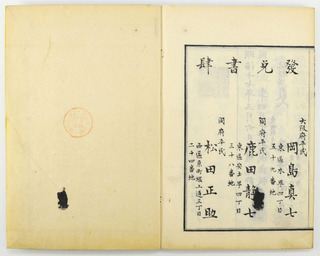 發兌書肆
大阪府平民
岡島真七
東區本町四丁目
五十九番地
同府平民
鹿田靜七
東區安土町四丁目
三十八番地
同府平民
松田正助
南區東街堀上通三丁目
二十四番地